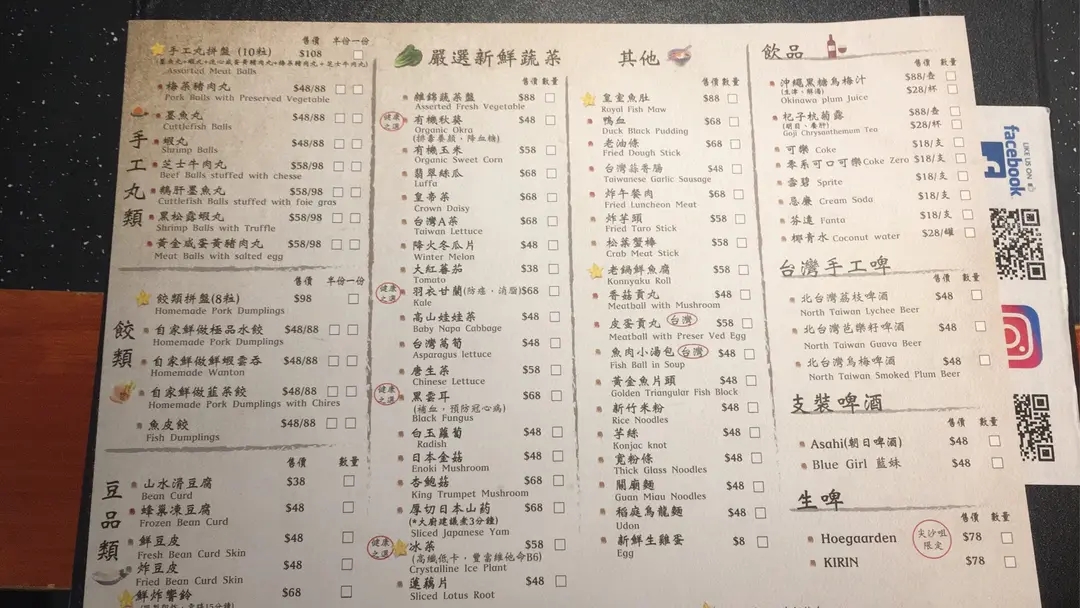 售價 半份一份
手工丸拼盤 (10粒) $108
Assorted Meat Balls
手工丸類
梅菜豬肉丸 $48/88
Pork Balls with Preserved Vegetable
墨魚丸 $48/88
Cuttlefish Balls
蝦丸 $48/88
Shrimp Balls
芝士牛肉丸 $58/98
Beef Balls stuffed with chesse
鵝肝墨魚丸 $58/98
Cuttlefish Balls stuffed with foie gras
黑松露蝦丸 $58/98
Shrimp Balls with Truffle
黃金咸蛋黃豬肉丸 $58/98
Meat Balls with salted egg
售價 半份一份
餃類拼盤(8粒) $98
Homemade Pork Dumplings
餃類
自家鮮做極品水餃 $48/88
Homemade Pork Dumplings
自家鮮做鮮蝦雲吞 $48/88
Homemade Wanton
自家鮮做韮菜餃 $48/88
Homemade Pork Dumplings with Chires
魚皮餃 $48/88
Fish Dumplings
售價 數量
豆品類
山水滑豆腐 $38
Bean Curd
蜂巢凍豆腐 $48
Frozen Bean Curd
鮮豆皮 $48
Fresh Bean Curd Skin
炸豆皮 $48
Fried Bean Curd Skin
鮮炸響鈴 $68
嚴選新鮮蔬菜
售價 數量
雜錦蔬菜盤 $88
Asserted Fresh Vegetable
健康之選
有機秋葵 $48
Organic Okra
有機玉米 $58
Organic Sweet Corn
翡翠絲瓜 $68
Luffa
皇帝菜 $68
Crown Daisy
台灣A菜 $68
Taiwan Lettuce
降火冬瓜片 $48
Winter Melon
大紅蕃茄 $38
Tomato
健康之選
羽衣甘蘭(防癌，消脂) $68
Kale
高山娃娃菜 $48
Baby Napa Cabbage
台灣萵筍 $48
Asparagus lettuce
唐生菜 $58
Chinese Lettuce
健康之選
黑雲耳 $68
(補血，預防冠心病)
Black Fungus
白玉蘿蔔 $48
Radish
日本金菇 $48
Enoki Mushroom
杏鮑菇 $68
King Trumpet Mushroom
厚切日本山葯 $68
(*大廚建議煮3分鐘)
Sliced Japanese Yam
健康之選
冰菜 $58
(高纖低卡，豐富維他命B6)
Crystalline Ice Plant
蓮藕片 $48
Sliced Lotus Root
其他
售價 數量
皇室魚肚 $88
Royal Fish Maw
鴨血 $68
Duck Black Pudding
老油條 $68
Fried Dough Stick
台灣蒜香腸 $48
Taiwanese Garlic Sausage
炸午餐肉 $68
Fried Luncheon Meat
炸芋頭 $58
Fried Taro Stick
松葉蟹棒 $58
Crab Meat Stick
老鍋鮮魚腐 $58
Konnyaku Roll
香菇貢丸 $48
Meatball with Mushroom
皮蛋貢丸 台灣 $58
Meatball with Preser Ved Egg
魚肉小湯包 台灣 $48
Fish Ball in Soup
黃金魚片頭 $48
Golden Triangular Fish Block
新竹米粉 $48
Rice Noodles
芋絲 $48
Konjac knot
寬粉條 $48
Thick Glass Noodles
關廟麵 $48
Guan Miau Noodles
稻庭烏龍麵 $48
Udon
新鮮生雞蛋 $8
Egg
飲品
售價 數量
沖繩黑糖烏梅汁 $88/壺
(生津，解渴) $28/杯
Okinawa plum Juice
杞子杭菊露 $88/壺
(明目，養肝) $28/杯
Goji Chrysanthemum Tea
可樂 Coke $18/支
零系可口可樂 Coke Zero $18/支
雪碧 Sprite $18/支
忌廉 Cream Soda $18/支
芬達 Fanta $18/支
椰青水 Coconut water $28/罐
台灣手工啤
售價 數量
北台灣荔枝啤酒 $48
North Taiwan Lychee Beer
北台灣芭樂籽啤酒 $48
North Taiwan Guava Beer
北台灣烏梅啤酒 $48
North Taiwan Smoked Plum Beer
支裝啤酒
售價 數量
Asahi(朝日啤酒) $48
Blue Girl 藍妹 $48
生啤
售價 數量
尖沙咀限定
Hoegaarden $78
KIRIN $78
LIKE US ON
facebook